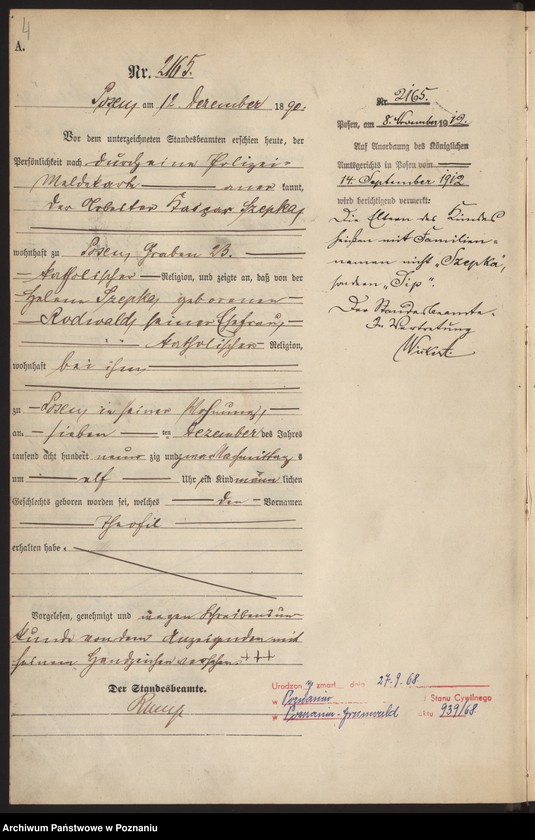 4
A.
Nr. 2165.
Posen, am 12 Dezember 1890.
Vor dem unterzeichneten Standesbeamten erschien heute, der
Persönlichkeit nach durch eine Polizei-
Meldekarte anerkannt,
der Arbeiter Szepka,
wohnhaft zu Posen, Graben 23.
katholischer Religion, und zeigte an, daß von der
Helene Szepka, geborenen
Rodwald, seiner Ehefrau,
katholischer Religion,
wohnhaft bei ihm
zu Posen, in seiner Wohnung,
am sieben ten Dezember des Jahres
tausend acht hundert neun zig und zwar Nachmittags
um elf Uhr, ein Kind männlichen
Geschlechts geboren worden sei, welches den Vornamen
Theofil
erhalten habe.
Vorgelesen, genehmigt und wegen Schreibensun-
kunde von dem Anzeigenden mit
seinem Handzeichen versehen +++
Der Standesbeamte.
Nr. 2165.
Posen, am 8. November 1912.
Auf Anordnung des Königlichen
Amtsgerichts in Posen vom
14. September 1912
wird berichtigend vermerkt:
Die Eltern des Kindes
heißen mit Familien-
namen nicht „Szepka“,
sondern „Sip“.
Der Standesbeamte.
In Vertretung
Urodzon y zmarł dnia 27.9.68
w Poznaniu
Stanu Cywilnego
w Poznaniu-Grunwald aktu 939/68
Archiwum Państwowe w Poznaniu